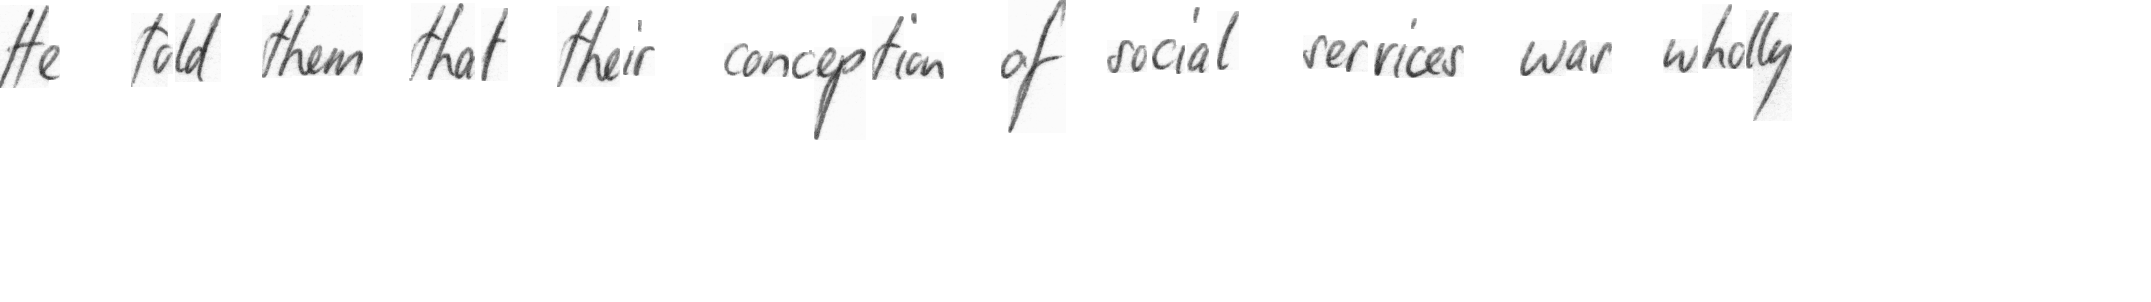 He told them that their conception of social services was wholly